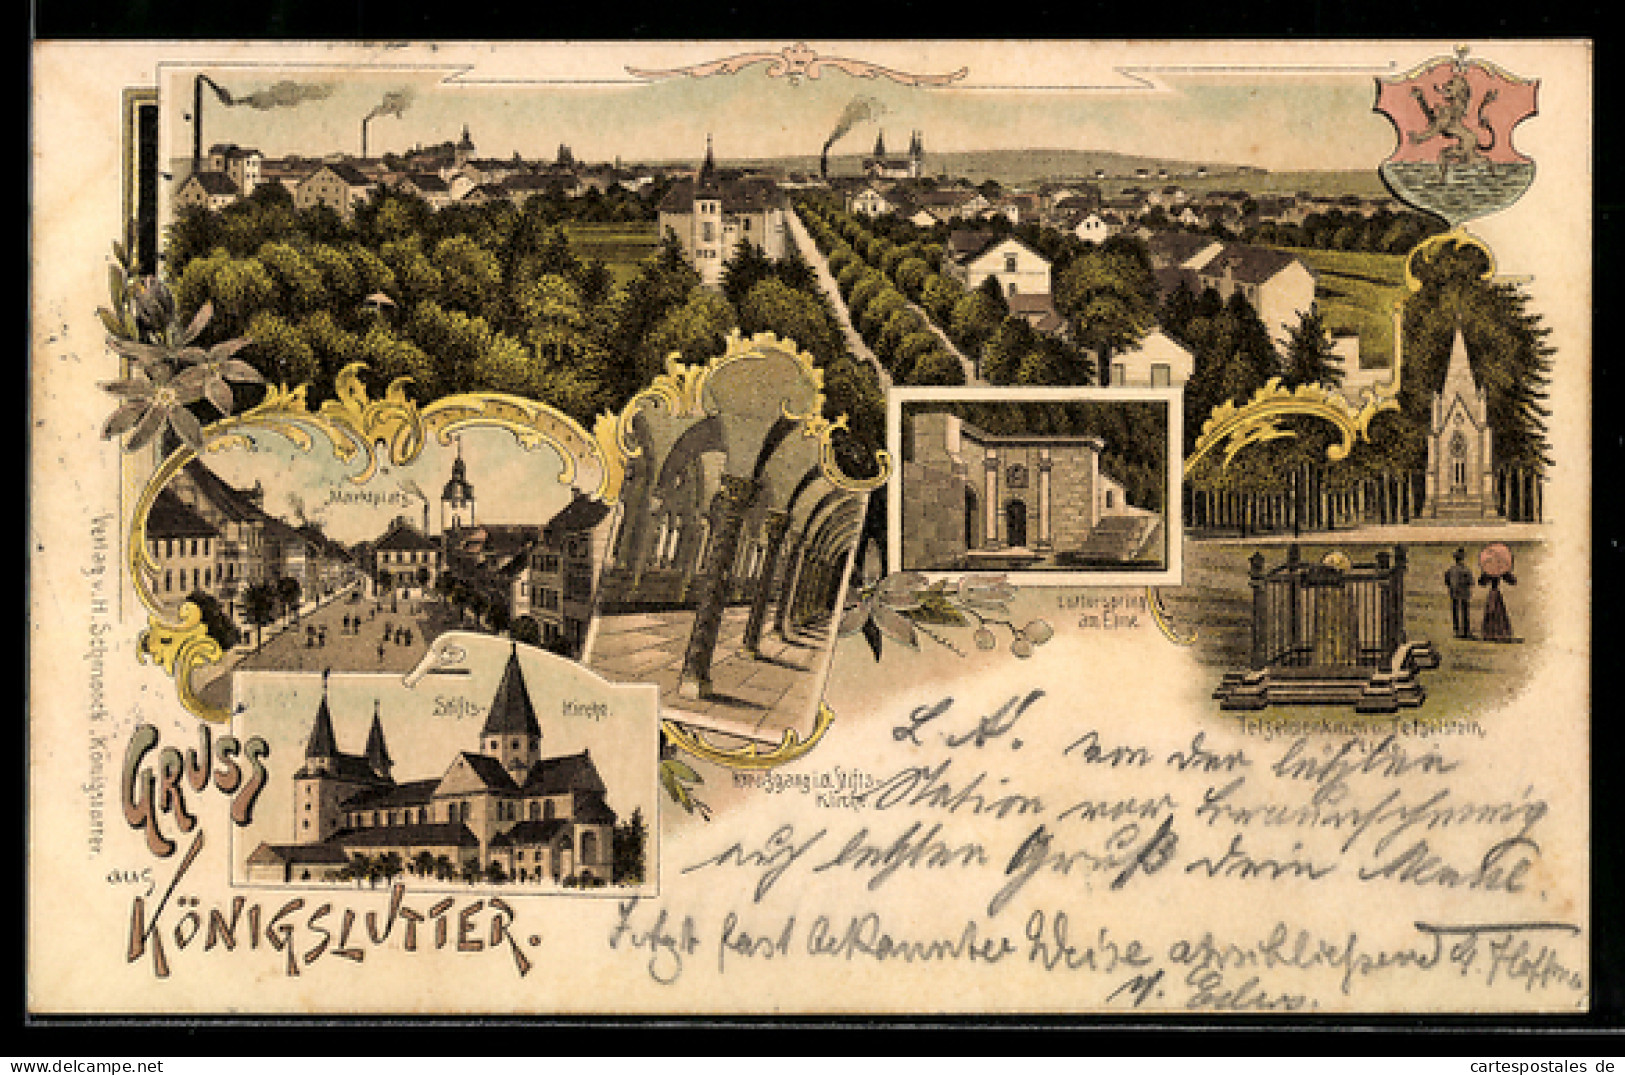 Marktplatz
Stifts- Kirche.
Kreuzgang i. d. Stifts-
Kirche
Lutterspring
am Elme
Tetzeldenkmal u. Tetzelstein.
Verlag v. H. Schnoock, Königslutter.
Gruss
aus
Königslutter.
L. A. von der letzten
Station vor Braunschweig
auch letzten Gruß Dein
Jetzt fast bekannter Weise abschließend
cartespostales de